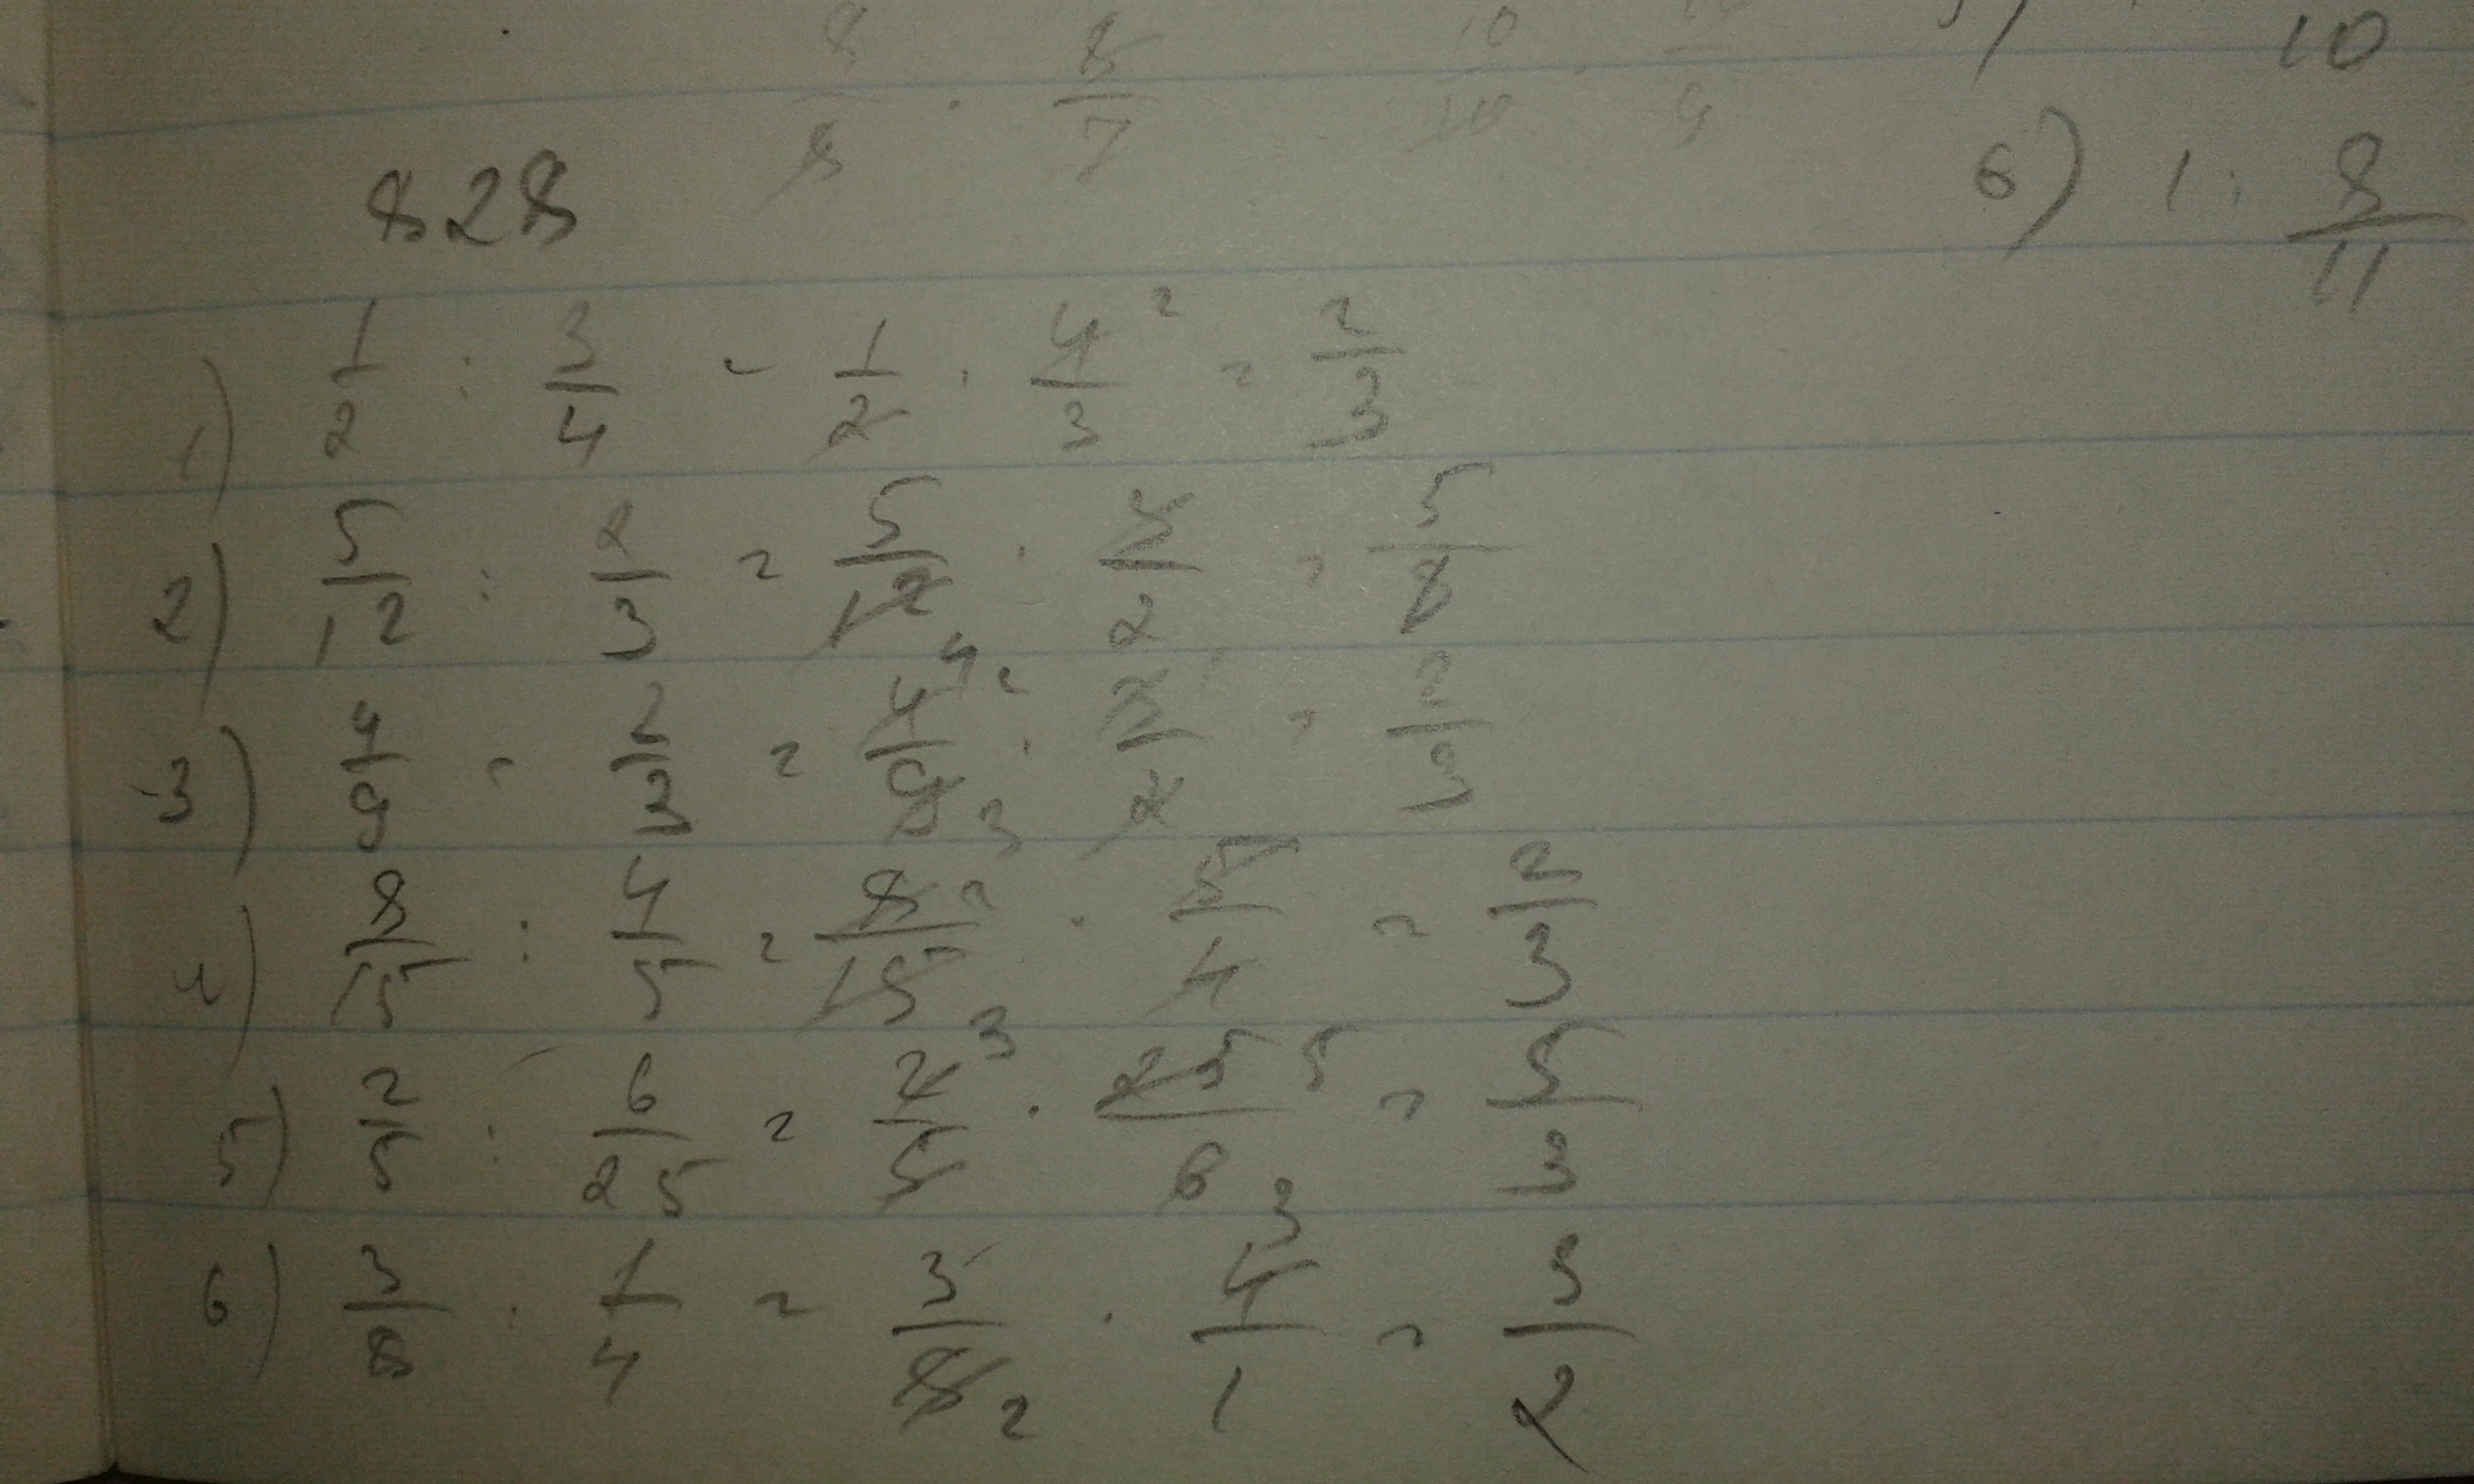 8/8 · 8/7 10/10 · 9
10
828
6) 1 : 8/11
1) 1/2 : 3/4 = 1/2 · 4/3 2 = 2/3
2) 5/12 : 2/3 = 5/12 4 · 3/2 = 5/8
3) 4/9 : 2/3 = 4/9 2 3 · 3/2 1 = 2/3
4) 8/15 : 4/5 = 8/15 2 3 · 5/4 = 2/3
5) 2/5 : 6/25 = 2/5 · 25/6 5 3 = 5/3
6) 3/8 : 1/4 = 3/8 2 · 4/1 = 3/2